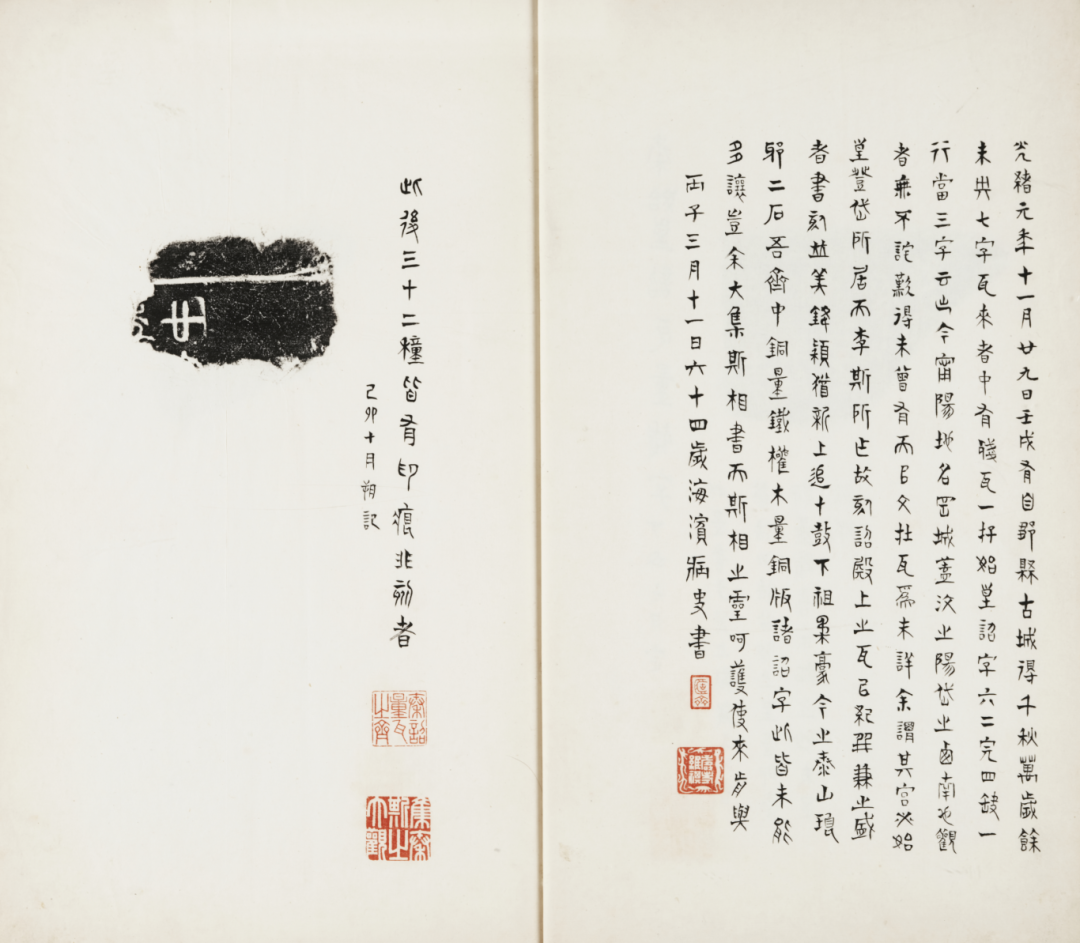 光緒元年十一月廿九日壬戌有自鄒縣古城得千秋萬歲餘
未央七字瓦來者中有殘瓦一始皇詔字六二完四缺一
行當三字云出今甯陽地名罡城蓋汶之陽岱之鹵南也觀
者無不詫歎得未曾有而㠯文在瓦爲未詳余謂其宮必始
皇登岱所居而李斯所作故刻詔殿上之瓦㠯紀并兼之盛
者書刻並美鋒穎猶新上追十鼓下祖豪今之泰山琅
邪二石吾齊中銅量鐵權木量銅版諸詔字此皆未能
多讓豈余大集斯相書而斯相之靈呵護使來歬與
丙子三月十一日六十四歲海濱病史書
此後三十二種皆有印痕非刻者
己卯十月朔記
秦詔量瓦之齊
集秦斯之大觀